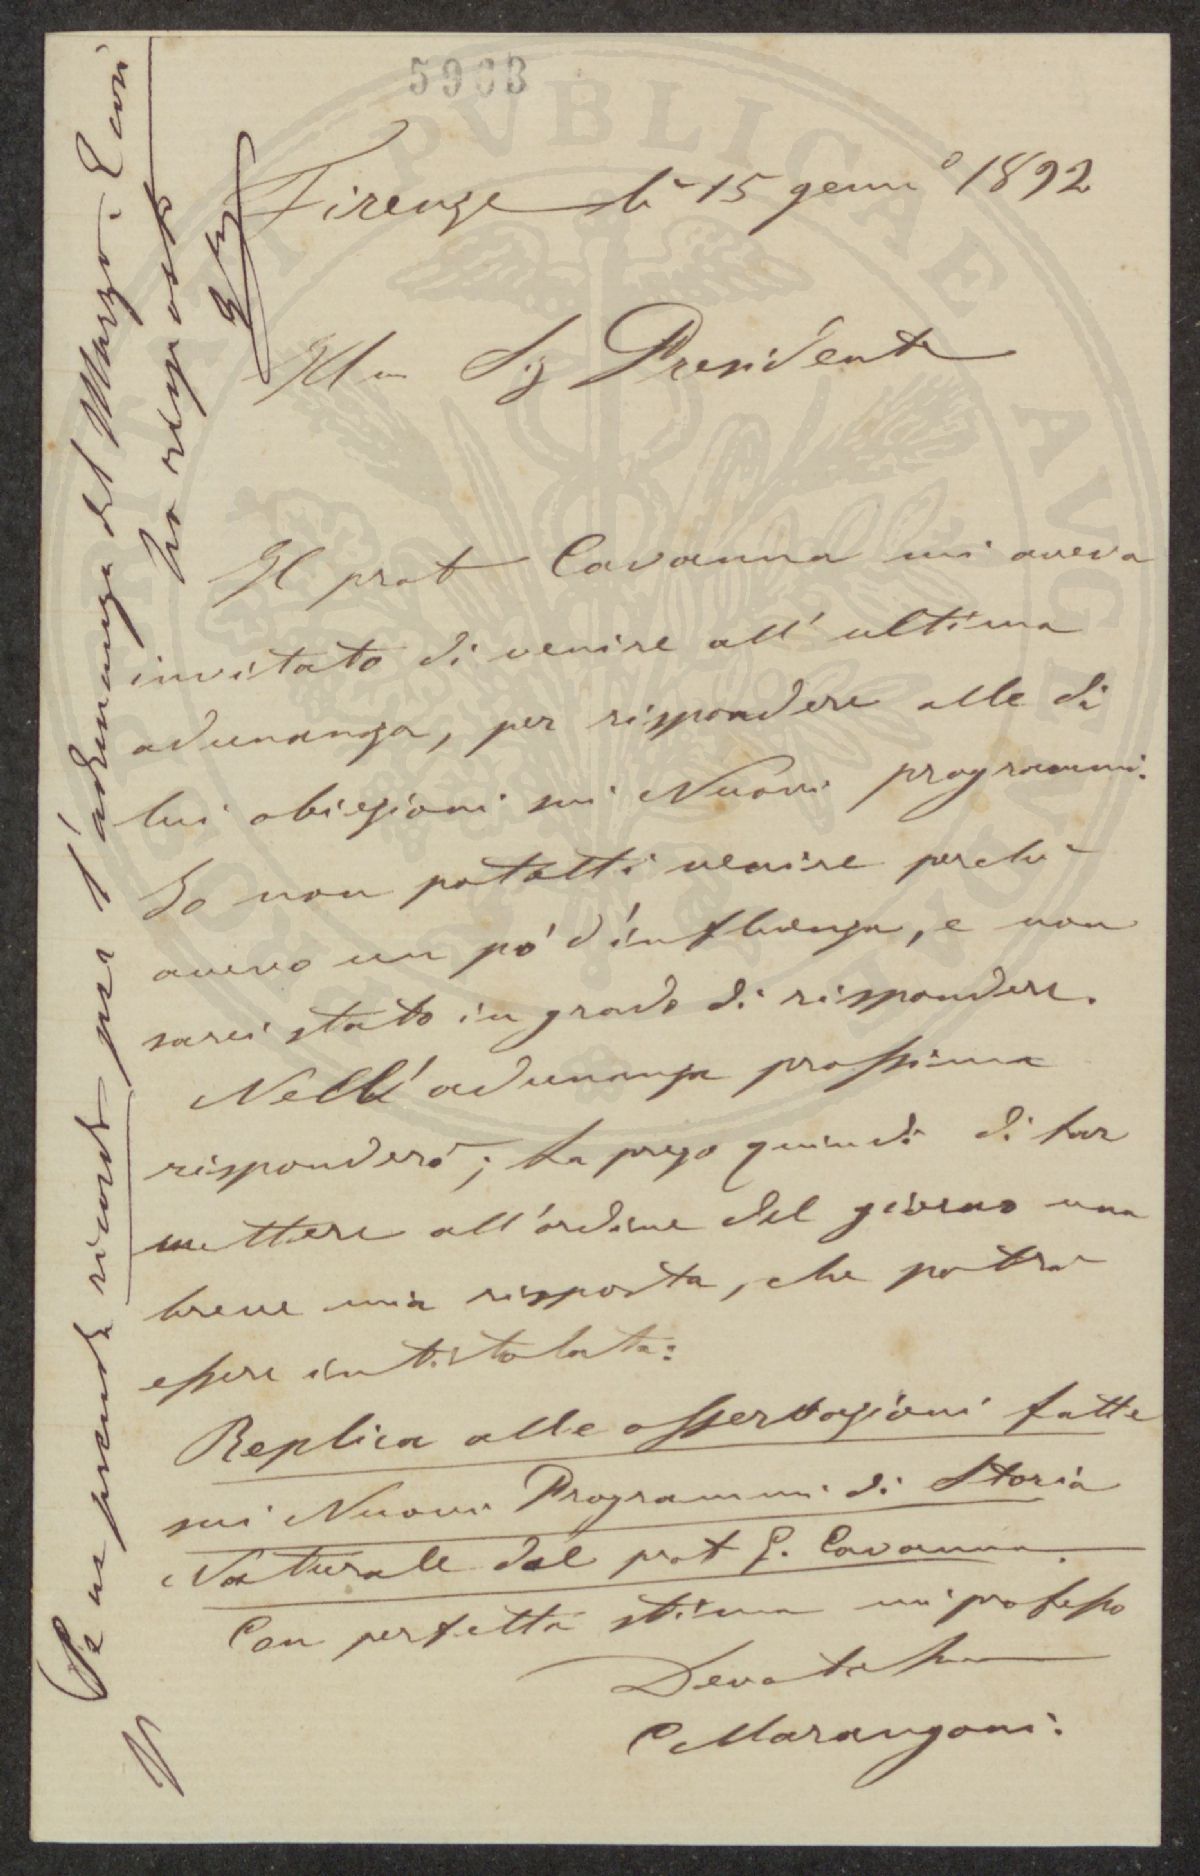 5963
Firenze lì 15 genn.º 1892
Ill.mo Sig Presidente
Il prof Cavanna mi aveva
invitato di venire all'ultima
adunanza, per rispondere alle di
lui obiezioni sui Nuovi programmi.
Io non potetti venire perchè
avevo un pò d'influenza, e non
sarei stato in grado di rispondere.
Nell'adunanza prossima
risponderò; La prego quindi di far
mettere all'ordine del giorno una
breve mia risposta, che potrà
essere intitolata:
Replica alle osservazioni fatte
sui Nuovi Programmi di Storia
Naturale dal prof G. Cavanna.
Con perfetta stima mi professo
Devotissmo
C Marangoni.
Se ne prenda ricordo per l'adunanza del Marzo. Così
ho risposto